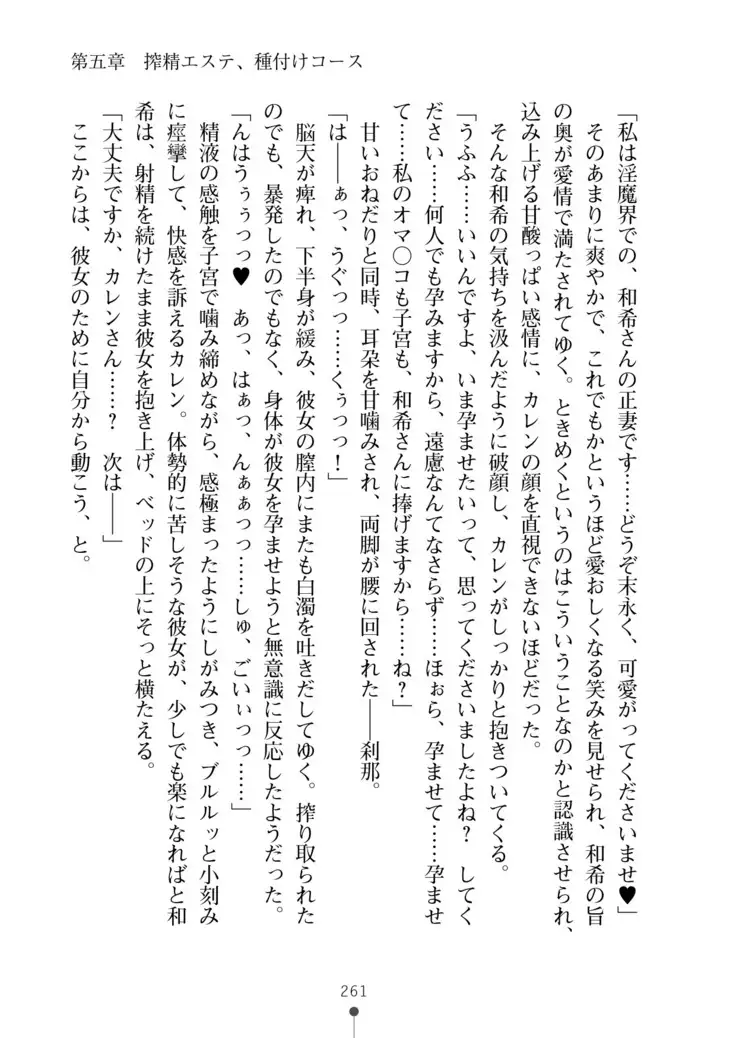 第五章　搾精エステ、種付けコース
「私は淫魔界での、和希さんの正妻です……どうぞ末永く、可愛がってくださいませ♥」
そのあまりに爽やかで、これでもかというほど愛おしくなる笑みを見せられ、和希の胸
の奥が愛情で満たされてゆく。ときめくというのはこういうことなのかと認識させられ、
込み上げる甘酸っぱい感情に、カレンの顔を直視できないほどだった。
そんな和希の気持ちを汲んだように破顔し、カレンがしっかりと抱きついてくる。
「うふふ……いいんですよ、いま孕ませたいって、思ってくださいましたよね？　してく
ださい……何人でも孕みますから、遠慮なんてなさらず……ほぉら、孕ませて……孕ませ
て……私のオマ〇コも子宮も、和希さんに捧げますから……ね？」
甘いおねだりと同時、耳朶を甘噛みされ、両脚が腰に回された――刹那。
「は――ぁっ、うぐっっ……くぅっっ！」
脳天が痺れ、下半身が緩み、彼女の膣内にまたも白濁を吐きだしてゆく。搾り取られた
のでも、暴発したのでもなく、身体が彼女を孕ませようと無意識に反応したようだった。
「んはうぅぅっっ♥　あっ、はぁっ、んぁぁっっ……しゅ、ごいぃっっ……」
精液の感触を子宮で噛み締めながら、感極まったようにしがみつき、ブルルッと小刻み
に痙攣して、快感を訴えるカレン。体勢的に苦しそうな彼女が、少しでも楽になればと和
希は、射精を続けたまま彼女を抱き上げ、ベッドの上にそっと横たえる。
「大丈夫ですか、カレンさん……？　次は――」
ここからは、彼女のために自分から動こう、と。
261